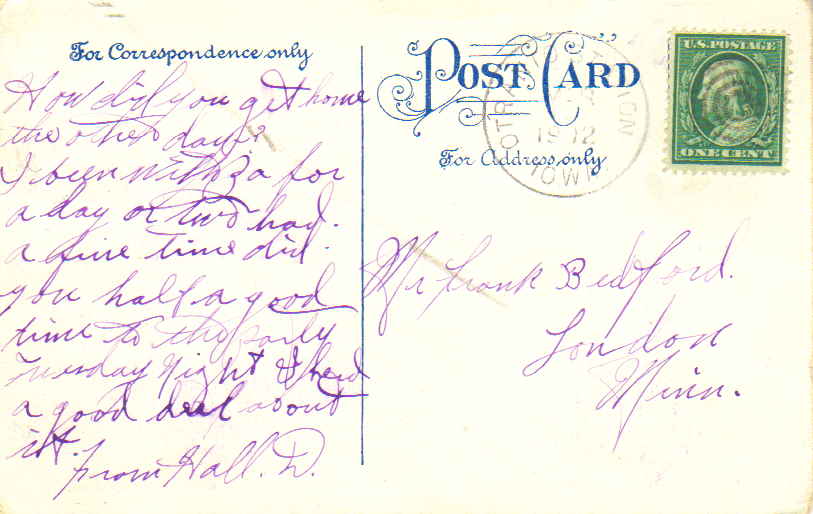 For Correspondence only
POST CARD
For Address only
U.S. POSTAGE
ONE CENT
OTRANTO STATION
1912
IOWA
How did you get home
the other day?
I been with for
a day or two had.
a fine time did.
you half a good
time to the party
Tuesday Night I herd
a good deel about
it.
from Hall. D.
Mr Frank Bedford.
London
Minn.